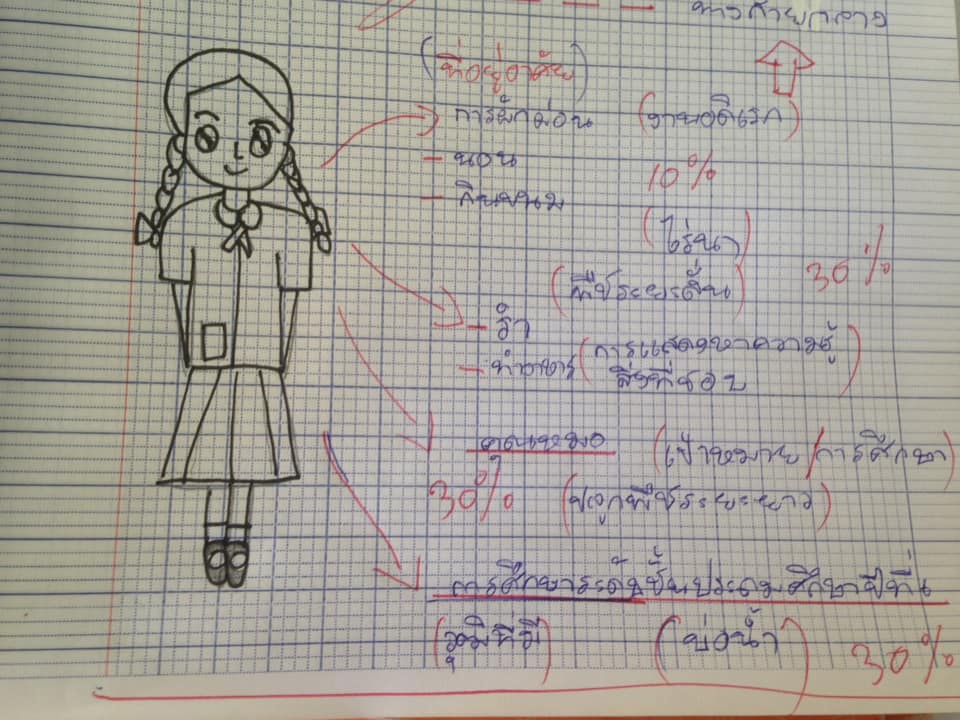 ทางสายกลาง
(ที่อยู่อาศัย)
การพักผ่อน (งานอดิเรก)
- นอน
10%
- กินขนม
(ไร่นา)
30%
(พืชระยะสั้น)
- รำ
- ทำอาหาร (การแสดงหาความรู้
สิ่งที่ชอบ)
คุณหมอ (เป้าหมาย/การศึกษา)
30% (ปลูกพืชระยะยาว)
การศึกษาระดับชั้นประถมศึกษาปีที่
(วุฒิที่มี) (บ่อน้ำ) 30%